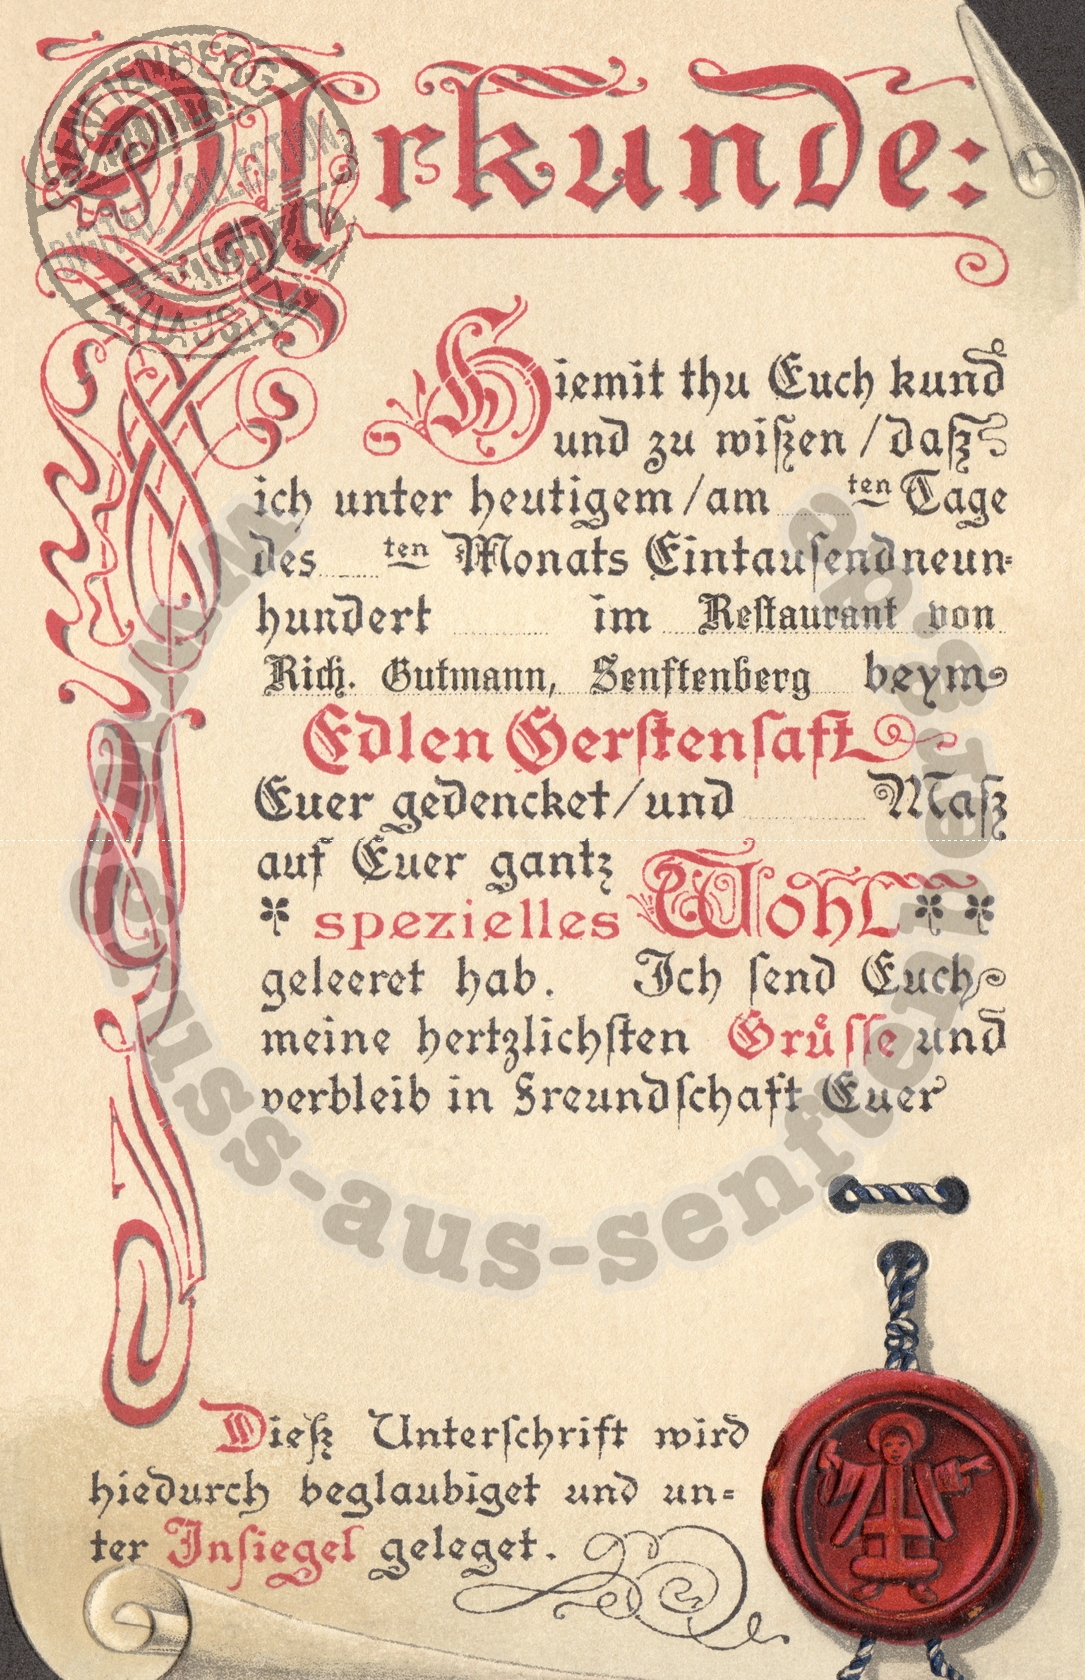 Urkunde:
Hiemit thu Euch kund
und zu wiſzen / daſz
ich unter heutigem / am ten Tage
des ten Monats Eintauſendneun-
hundert im Reſtaurant von
Rich. Gutmann, Senftenberg beym
Edlen Gerſtenſaft
Euer gedencket / und Maſz
auf Euer gantz
spezielles Wohl
geleeret hab. Ich ſend Euch
meine hertzlichſten Grůſſe und
verbleib in Freundſchaft Euer
Dieſz Unterſchrift wird
hiedurch beglaubiget und un=
ter Inſiegel geleget.
SENFTENBERG
DIGITAL COLLECTION
LAUSITZ
www.gruss-aus-senftenberg.de